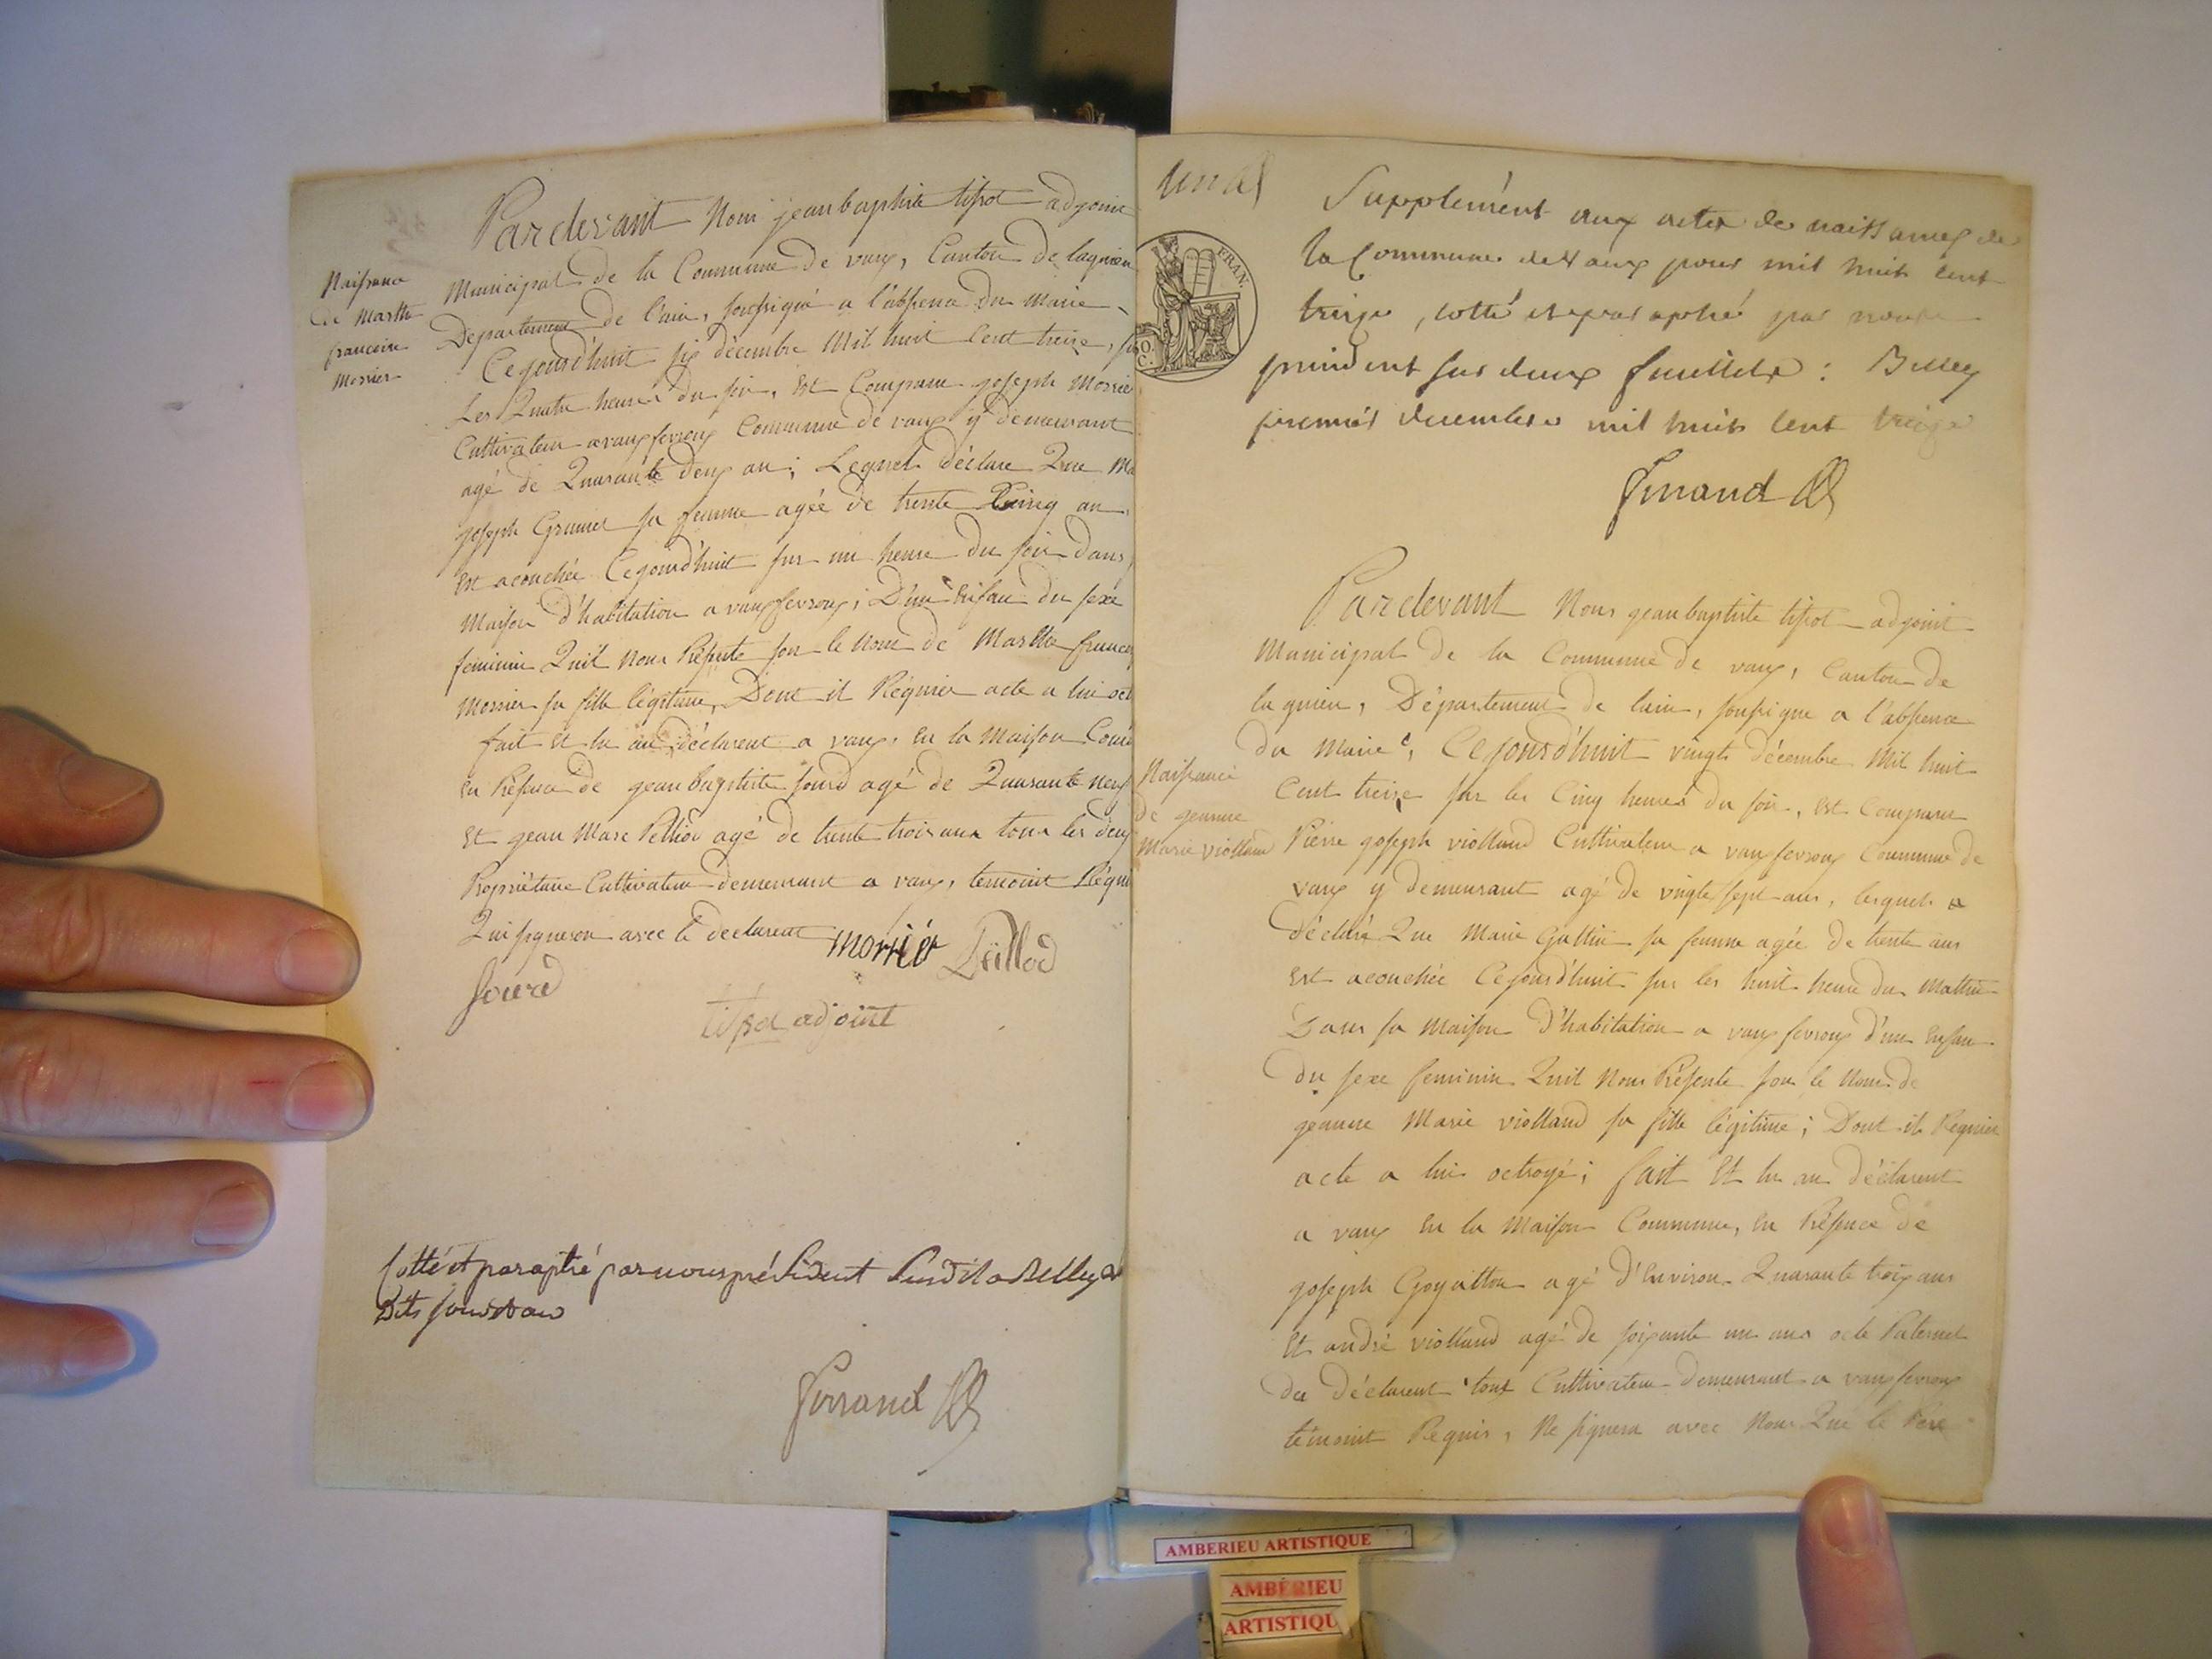 Naissance
de Marthe
francoise
Morrier
Pardevant Nous jean baptiste tissot adjoint
Municipal de la Commune de vaux, Canton de lagnieu
Departement de l'ain, soussigné a l'abssence du Maire,
Cejourd'huit six décembre Mil huit Cent treize, sur
Les Quatre heures du soir, Est Comparu joseph Morrier
Cultivateur a vauxfevroux Commune de vaux y demeurant
agé de Quarante deux ans; Lequel déclare Que
joseph sa femme agée de trente Cinq ans
Est acouchée Cejourd'huit sur une heure du soir dans
Maison d'habitation a vauxfevroux; D'un Enfan du sexe
feminin Quil Nous Présente sou le Nom de Marthe
Morrier sa fille légitime, Dont il Réquier acte a lui
fait Et lu au déclarent a vaux, En la Maison
En Présence de jean baptiste sourd agé de Quarante neuf
Et jean Marc Peillod agé de trente trois ans tous les deux
Propriétaire Cultivateur demeurant a vaux, temoint
Qui signeron avec le declarent Morrier Peillod
Sourd
tissot adjoint
Cotté et paraphé par nous président Susdit a Belley
Dits jour et an
Ferrand
FRAN.
Supplément aux actes de naissances de
la Commune de Vaux pour mil huit cent
treize, cotté et paraphé par nous
président sur deux feuillets : Belley
premier decembre mil huit cent treize
Ferrand
Pardevant Nous jean baptiste tissot adjoint
Municipal de la Commune de vaux, Canton de
lagnieu, Département de lain, soussigne a l'abssence
du Maire, Cejourd'huit vingt décembre Mil huit
Naissance
de jeanne
Marie violland
Cent treize sur les Cinq heures du soir, Est Comparu
Pierre joseph violland Cultivateur a vauxfevroux Commune de
vaux y demeurant agé de vingte sept ans, lequel a
déclaré Que Marie Guttin sa femme agée de trente ans
Est acouchée Cejourd'huit sur les huit heure du Mattin
Dans sa Maison d'habitation a vaux fevroux d'un Enfan
du sexe feminin Quil Nous Présente sou le Nom de
jeanne Marie violland sa fille légitime; Dont il Requier
acte a lui octroyé; fait Et lu au déclarent
a vaux En la Maison Commune, En Présence de
joseph Goyatton agé d'Environ Quarante troix ans
Et andré violland agé de soixante un ans Paternel
du Déclarent tous Cultivateur demeurant a vauxfevroux
témoint Requis, Ne signera avec Nous Que le Père
AMBERIEU ARTISTIQUE
AMBERIEU
ARTISTIQU